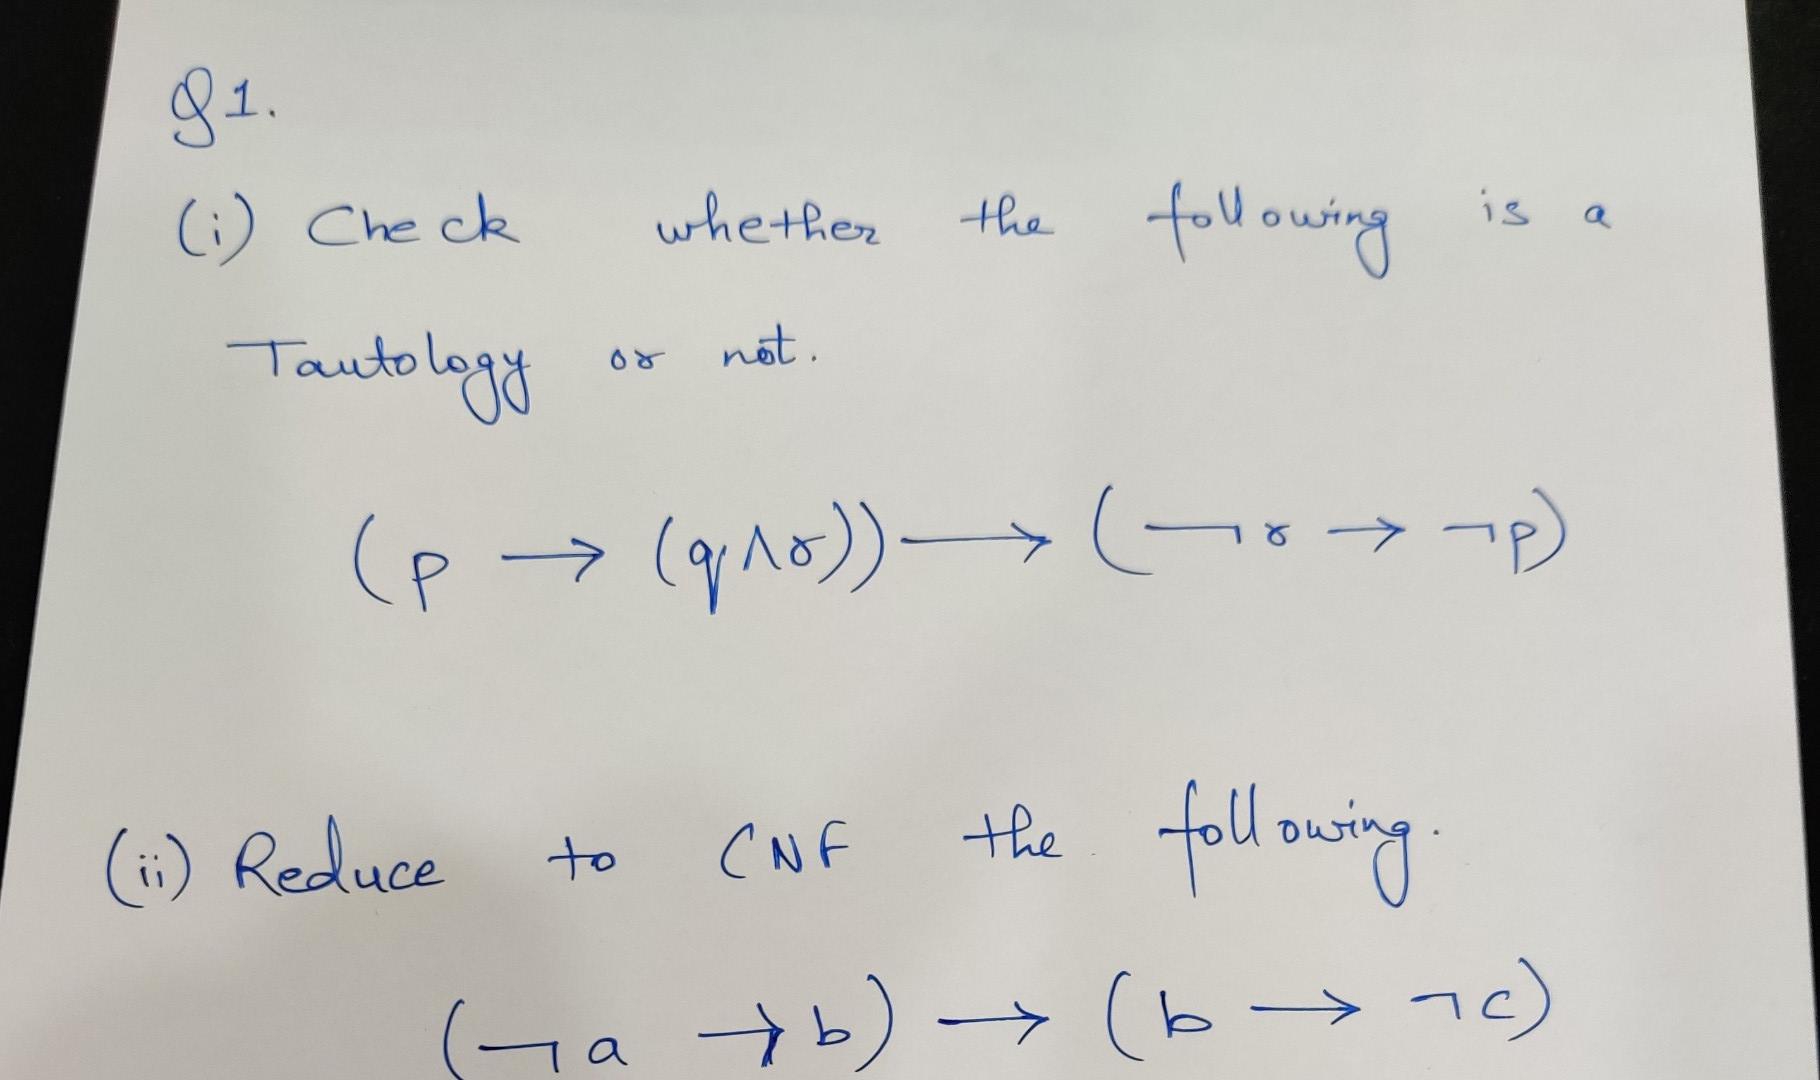 Q1.
(i) Check whether the following is a
Tautology or not.
(p → (q ∧ r)) → (¬r → ¬p)
(ii) Reduce to CNF the following.
(¬a → b) → (b → ¬c)